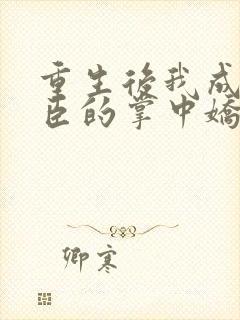 重生後我成
臣的掌中嬌
卿寒